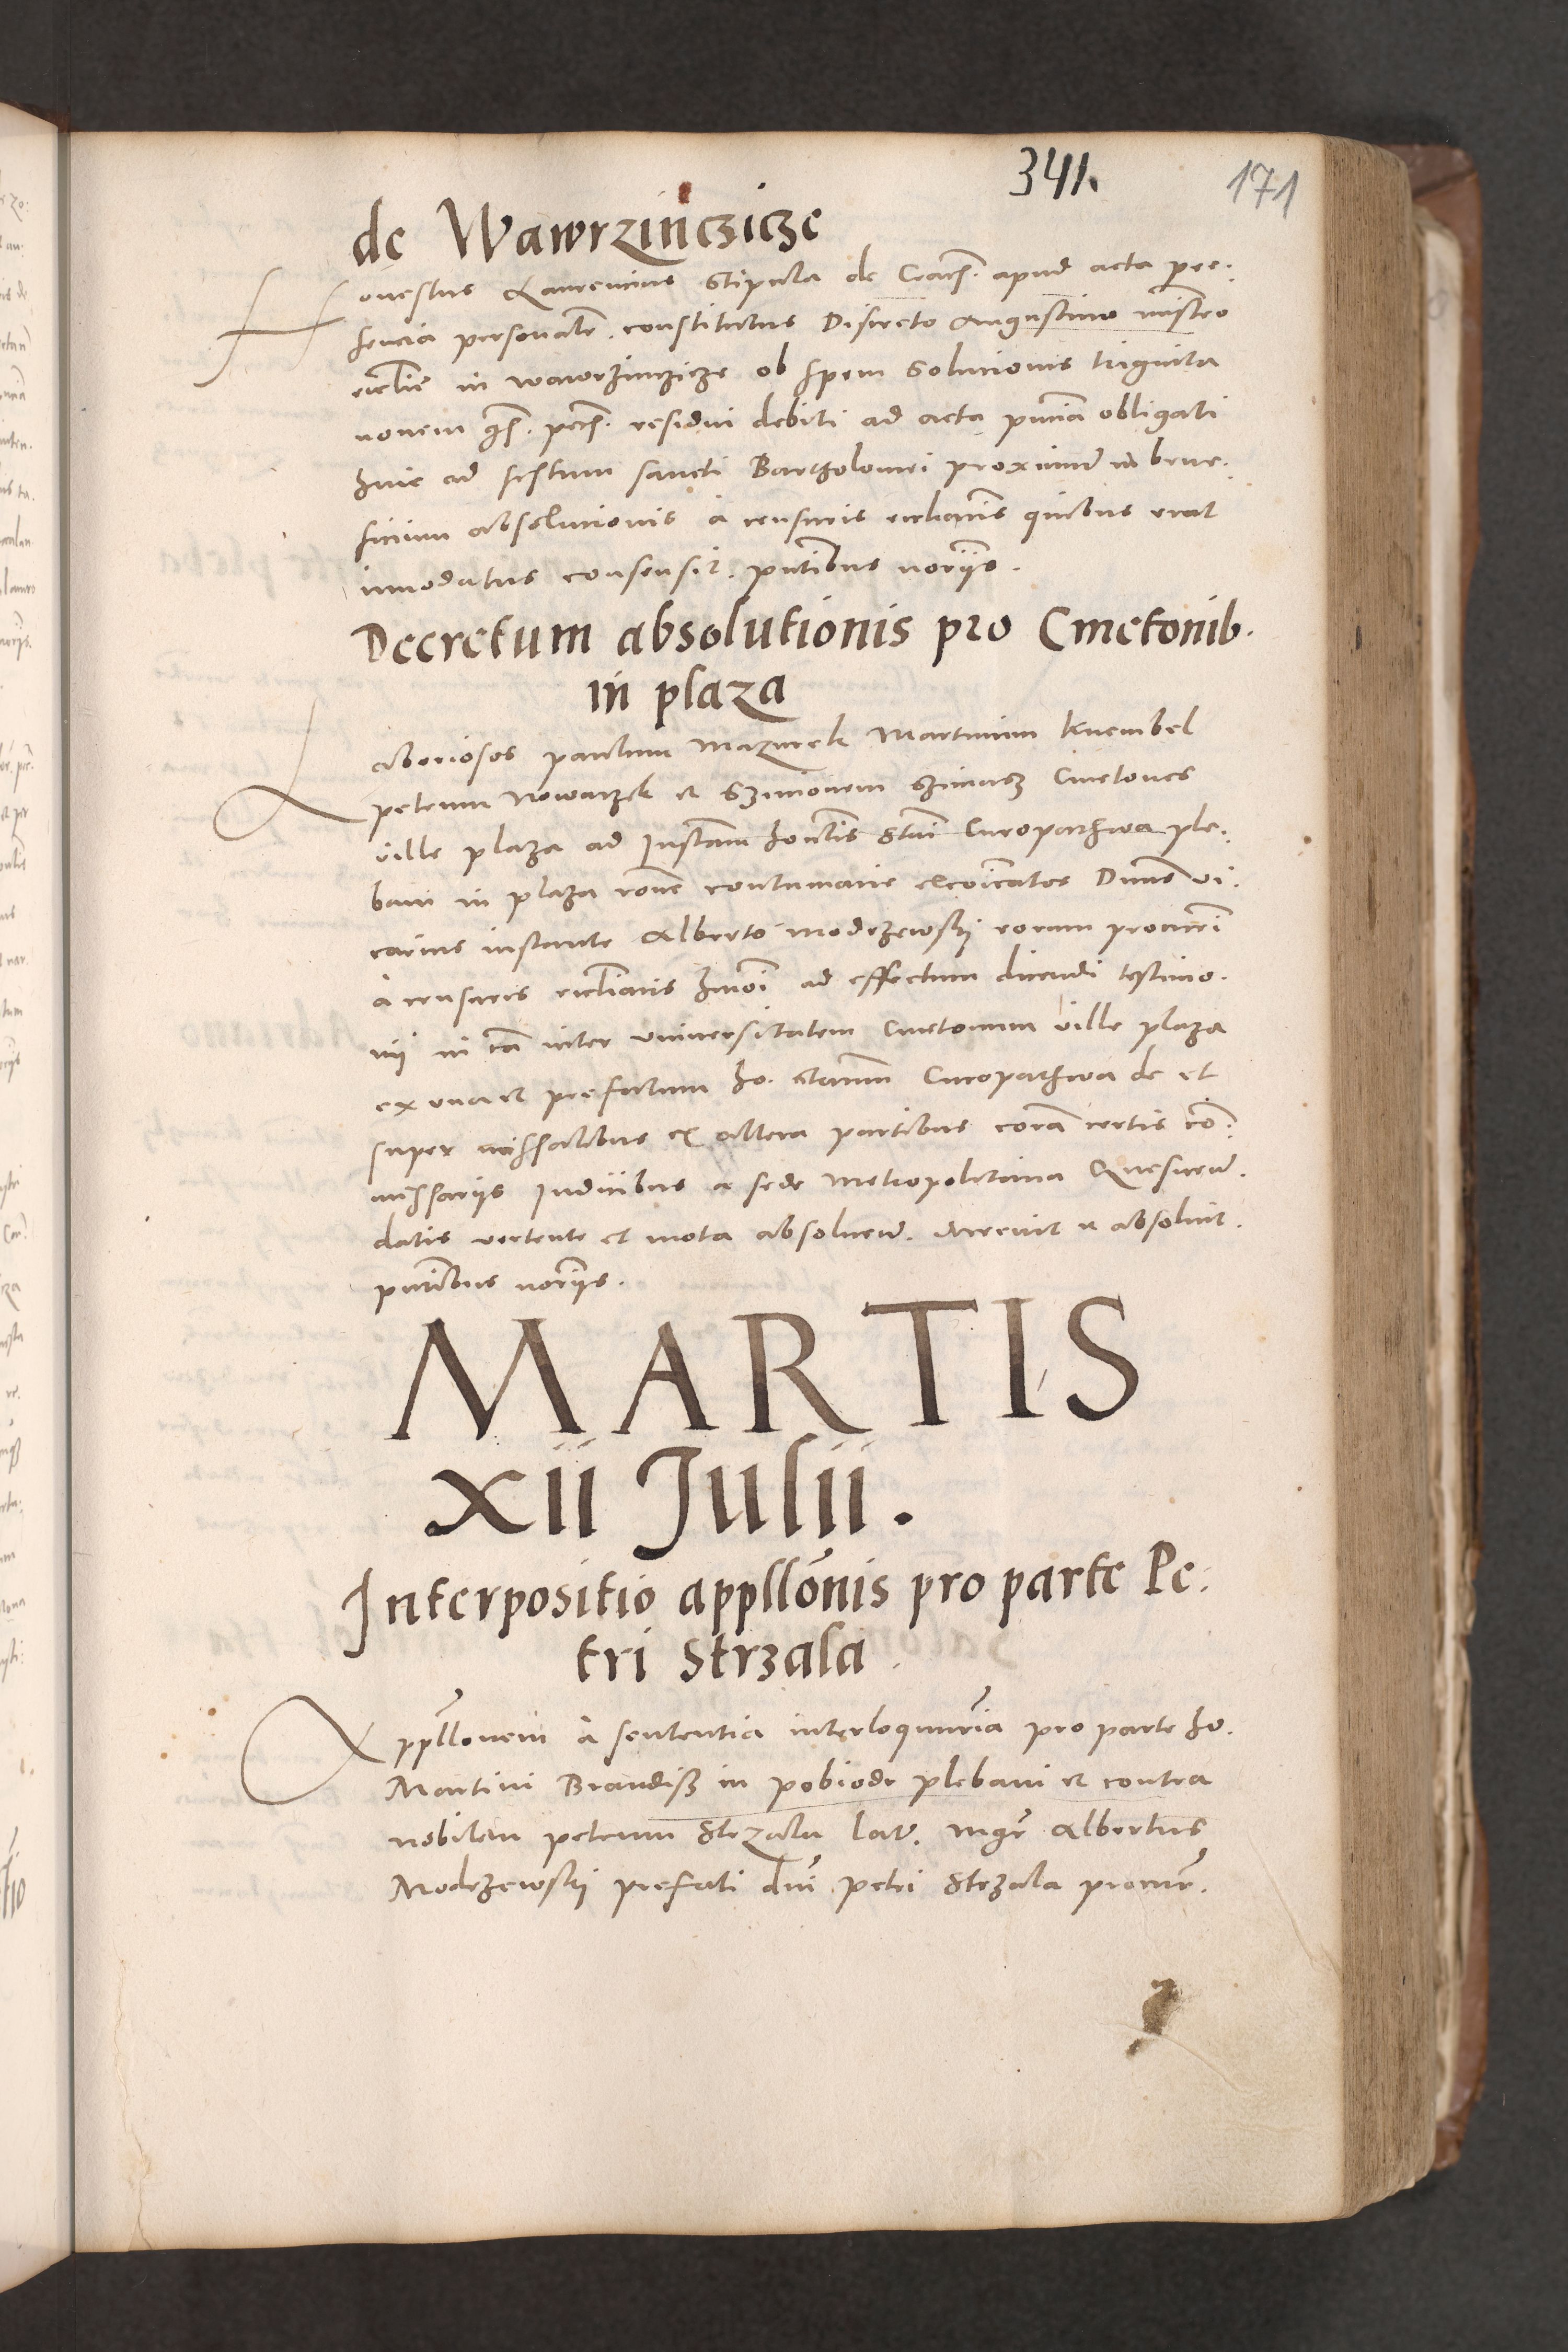 341.
171
de Wawrzinczicze
Honestus Laurencius Stipula de Crach. apud acta pre-
sencia personalr. constitutus Discreto Augustino mistro
ecclie in wawrzinczicze ob spem solucionis triginta
novem gs. pech. residui debiti ad acta pncia obligati
hinc ad festum sancti Bartholomei proximum in bene-
ficium absolucionis a censuris ecclicis quibus erat
innodatus consensit. pntibus noriis.
Decretum absolutionis pro Cmetonib.
in plaza
Laboriosos paulum Mazurek Martinum Knembel
petrum Nowaczek et Szimonem Szimusz Cmetones
ville plaza ad Instam hontis Stani Curopathwa ple-
bani in plaza rone contumacie excoicatos Dnus vi-
carius instante Alberto Modrzewskij eorum procuri
a censuris ecclicis hmoi ad effectum dicendi testimo-
nij in ca inter universitatem Cmetonum ville plaza
ex una et prefatum ho. Stanm Curopathwa de et
super missalibus ex altera partibus cora certis co-
missariis Iudicibus a sede Metropolitana Gnesnen.
datis vertente et mota absolven. decrevit et absolvit.
pntibus noriis.
MARTIS
xii Julii.
Interpositio appllonis pro parte Pe-
tri Strzala
Appllonem a sententia interloquuria pro parte ho.
Martini Brandisz in pobiodr plebani et contra
nobilem petrum Strzala lat. mgr Albertus
Modrzewskij prefati dni petri Strzala procur.